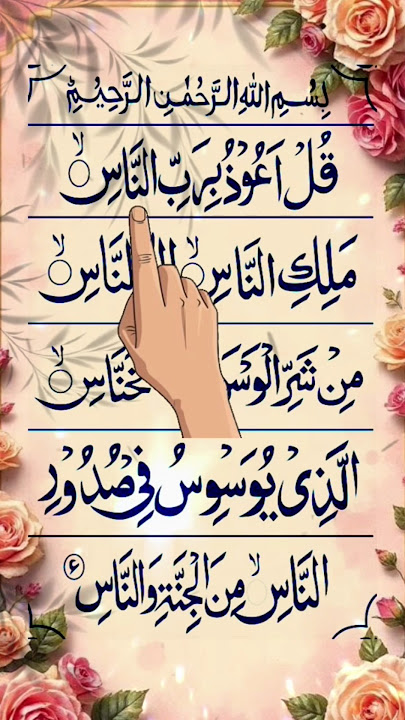 بِسْمِ اللهِ الرَّحْمٰنِ الرَّحِيْمِ
قُلْ اَعُوْذُ بِرَبِّ النَّاسِۙ
مَلِكِ النَّاسِۙ النَّاسِۙ
مِنْ شَرِّ الْوَسْ خَنَّاسِۙ
الَّذِىْ يُوَسْوِسُ فِىْ صُدُوْرِ
النَّاسِۙ مِنَ الْجِنَّةِ وَالنَّاسِ ع